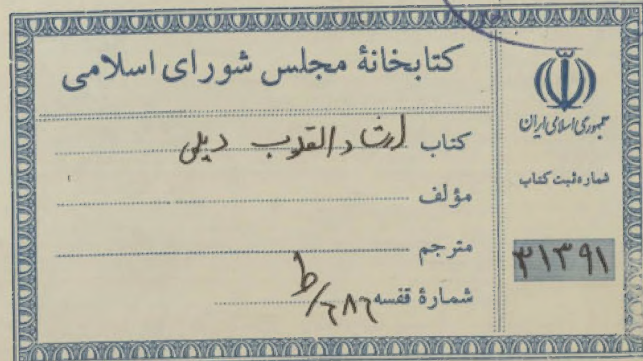 کتابخانهٔ مجلس شورای اسلامی
کتاب ارشاد القلوب دیلمی
مؤلف
مترجم
شمارهٔ قفسه ط/۶۸۶
جمهوری اسلامی ایران
شماره ثبت کتاب
۳۱۳۹۱